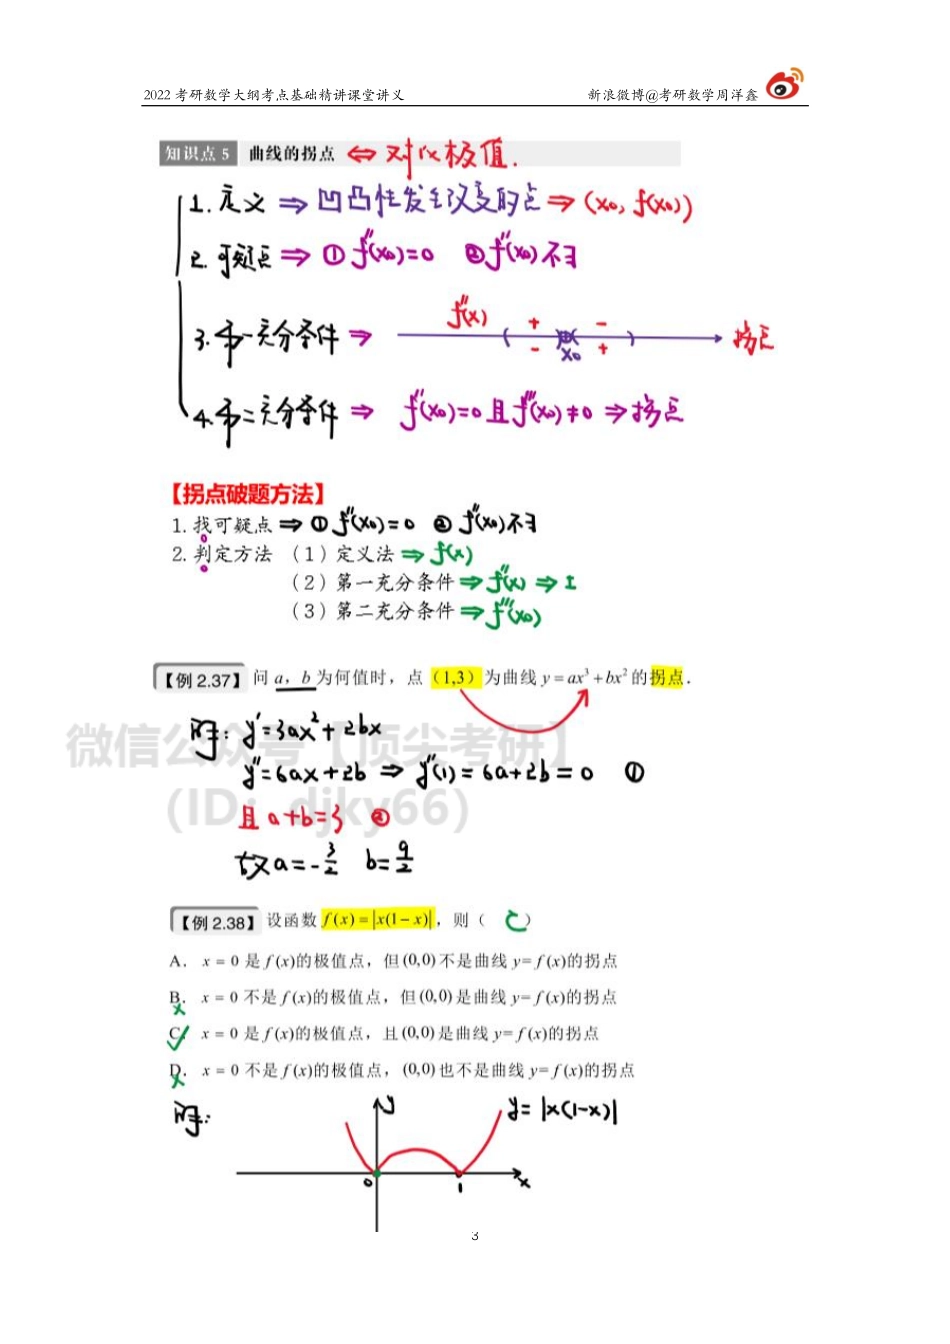 2022 考研数学大纲考点基础精讲课堂讲义 新浪微博@考研数学周洋鑫
知识点 5 曲线的拐点 ⇔ 对比极值.
1. 定义 ⇒ 凹凸性发生改变的点 ⇒ (x₀, f(x₀))
2. 可疑点 ⇒ ① f''(x₀)=0 ② f''(x₀)不∃
f''(x) + -
3. 第一充分条件 ⇒ ( ) 拐点
- x₀ +
4. 第二充分条件 ⇒ f''(x₀)=0 且 f'''(x₀)≠0 ⇒ 拐点
【拐点破题方法】
1. 找可疑点 ⇒ ① f''(x₀)=0 ② f''(x₀)不∃
2. 判定方法 (1) 定义法 ⇒ f(x)
(2) 第一充分条件 ⇒ f''(x) ⇒ ±
(3) 第二充分条件 ⇒ f'''(x₀)
【例 2.37】 问 a，b 为何值时，点 (1,3) 为曲线 y = ax³ + bx² 的拐点.
微信公众号【顶尖考研】
(ID: djky66)
解: y'=3ax²+2bx
y''=6ax+2b ⇒ y''(1)=6a+2b=0 ①
且 a+b=3 ②
故 a=-3/2 b=9/2
【例 2.38】 设函数 f(x) = |x(1−x)|，则 ( C )
A. x = 0 是 f(x)的极值点，但 (0,0) 不是曲线 y= f(x)的拐点
B. x = 0 不是 f(x)的极值点，但 (0,0) 是曲线 y= f(x)的拐点
C. x = 0 是 f(x)的极值点，且 (0,0) 是曲线 y= f(x)的拐点
D. x = 0 不是 f(x)的极值点，(0,0) 也不是曲线 y= f(x)的拐点
解: y y= |x(1-x)|
0 1 x
3